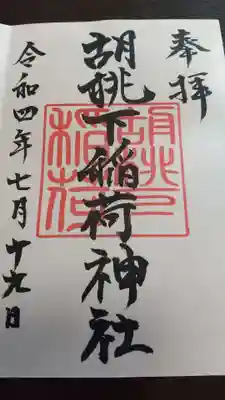 奉拝
胡桃下稲荷神社
胡桃下
稲荷
令和四年七月十九日